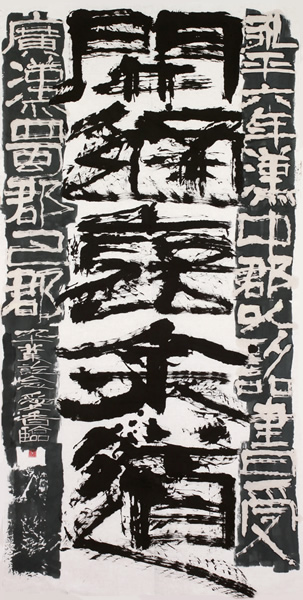 永平六年漢中郡以詔書受
開通褒余道
廣漢蜀郡巴郡